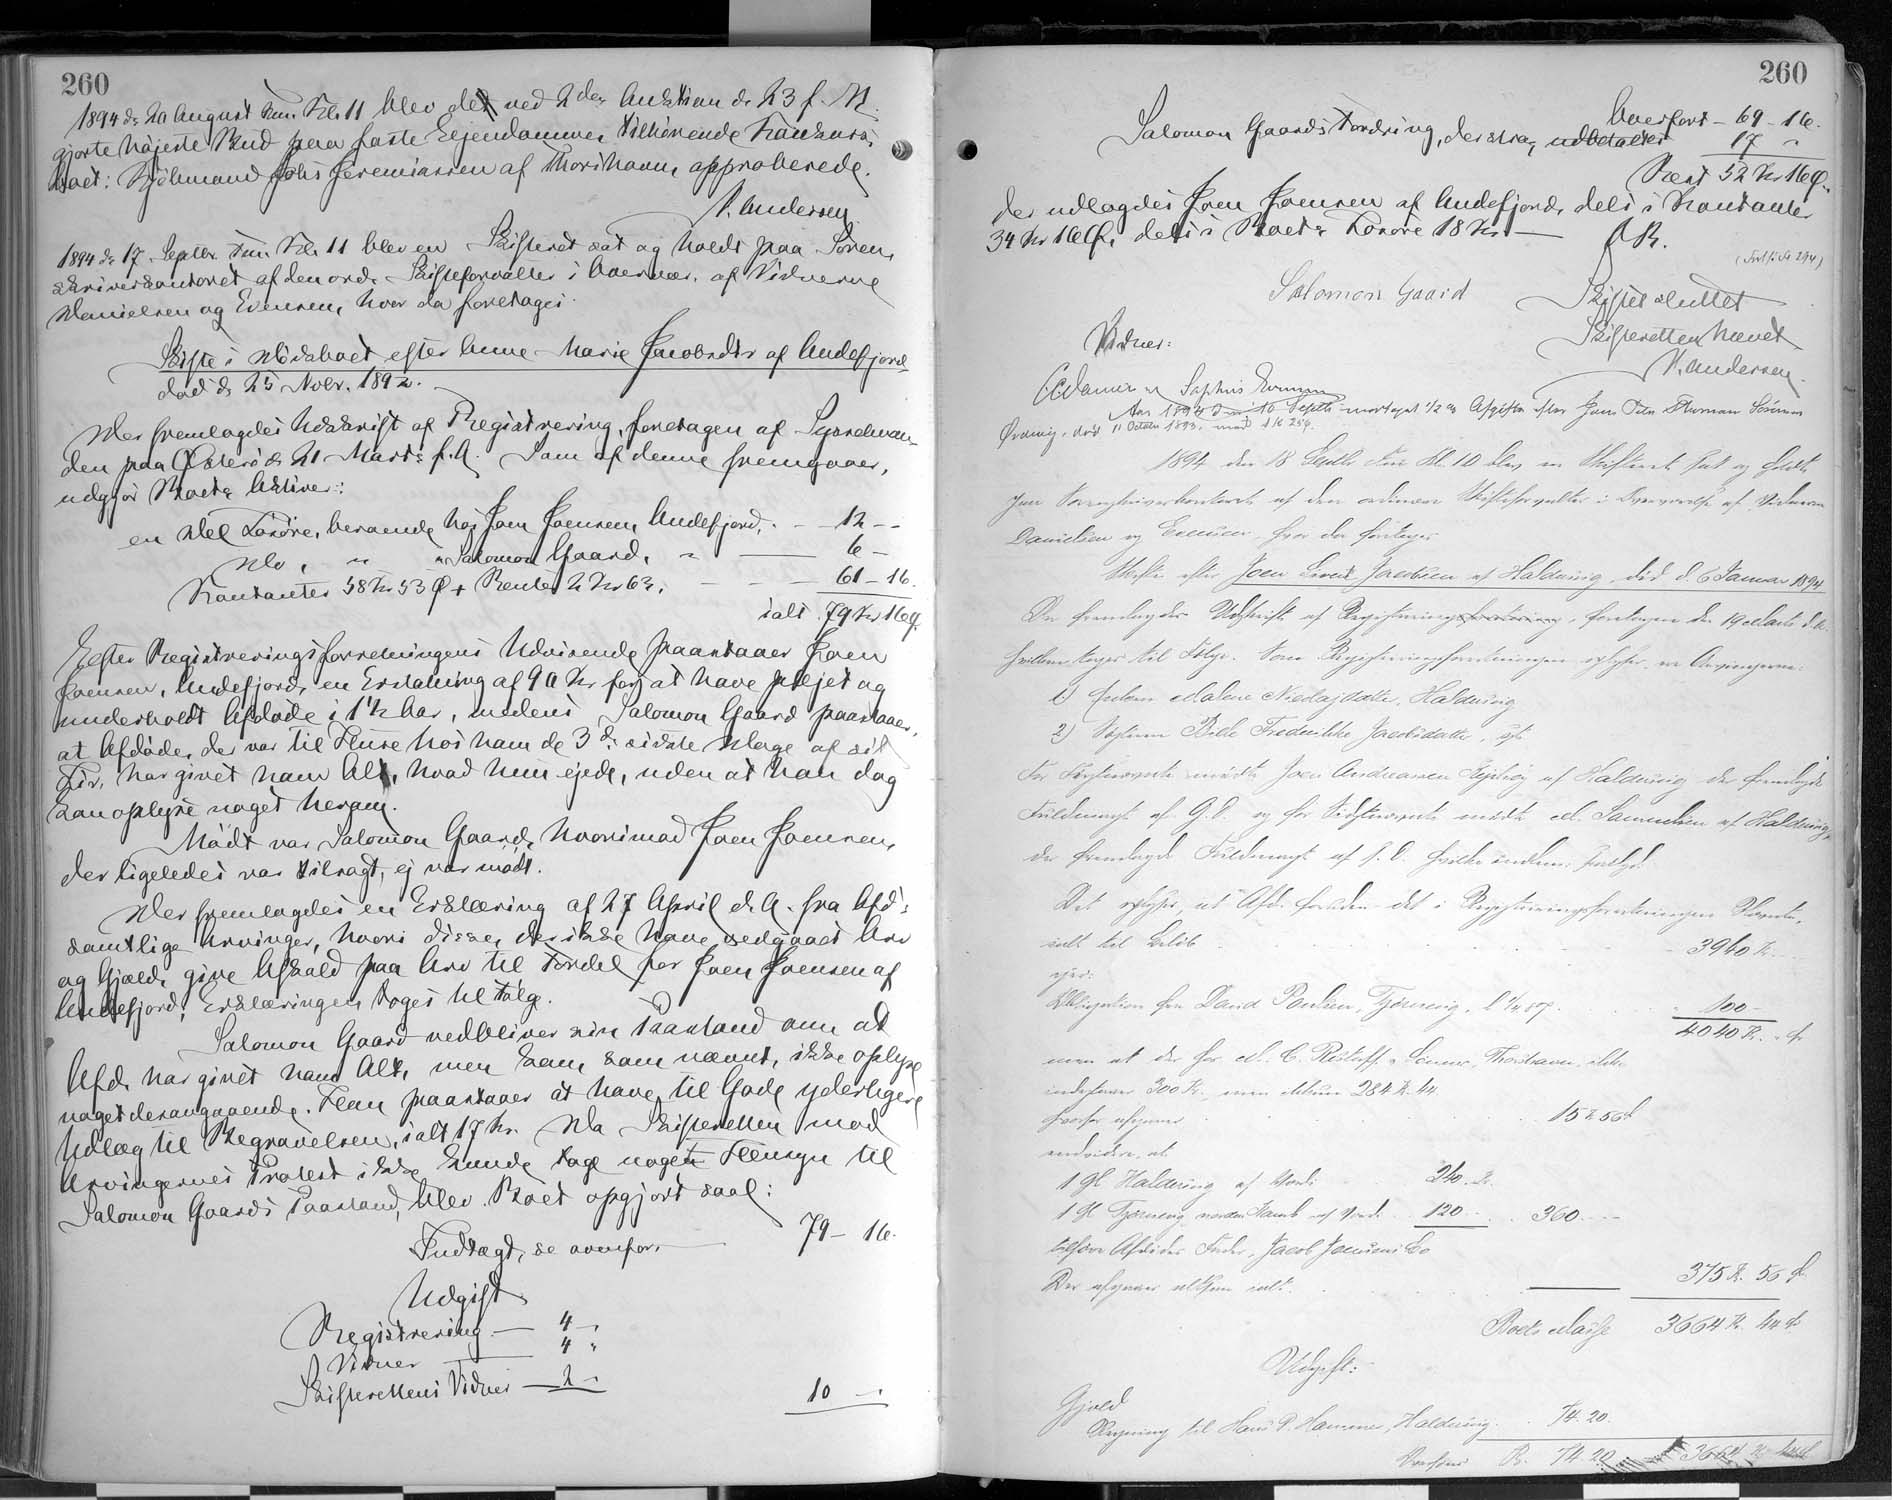 260
1894 d. 20 August Em. Kl. 11 blev det ved 2den Auktion d. 23 f. M.
gjorte højeste Bud paa faste Ejendomme, tilhørende Konkurs-
boet: Kjøbmand Johs Jeremiassen af Thorshavn, approberede.
N. Andersen.
1894 d. 17. Septbr. Fm. Kl. 11 blev en Skifteret sat og holdt paa Soren-
skriverkontoret af den ord. Skifteforvalter i Overvær. af Vidnerne
Danielsen og Evensen, hvor da foretoges:
Skifte i Dødsboet efter Anne-Marie Jacobsdtr af Andefjord
død d. 25 Novbr. 1892.
Der fremlagdes Udskrift af Registrering, foretagen af Sysselman-
den paa Østerø d. 21 Marts f. A. Som af denne fremgaaer,
udgjør Boets Aktiver:
en Del Løsøre, beroende hos Joen Joensen, Andefjord, - - 12 - -
Do, " " Salomon Gaard, " — 6 -
Kontanter 58 Kr 53 Ø + Renter 2 Kr 63, - - - 61 - 16.
ialt 79 Kr 16 Ø.
Efter Registreringsforretningens Udvisende paastaaer Joen
Joensen, Andefjord, en Erstatning af 90 Kr for at have plejet og
underholdt Afdøde i 1½ Aar, medens Salomon Gaard paastaaer,
at Afdøde, der var til Huse hos ham de 3de sidste Dage af sit
Liv, har givet ham Alt, hvad hun ejede, uden at han dog
kan oplyse noget herom.
Mødt var Salomon Gaard, hvorimod Joen Joensen,
der ligeledes var tilsagt, ej var mødt.
Der fremlagdes en Erklæring af 27 April d. A. fra Afd.s
samtlige Arvinger, hvori disse, der ikke have vedgaaet Arv
og Gjæld, give Afkald paa Arv til Fordel for Joen Joensen af
Andefjord; Erklæringen toges til Følge.
Salomon Gaard vedbliver sin Paastand om at
Afd. har givet ham Alt, men kan, som nævnt, ikke oplyse
noget desangaaende. Han paastaaer at have til Gode yderligere
Udlæg til Begravelsen, ialt 17 Kr. Da Skifteretten mod
Arvingernes Protest ikke kunde tage noget Hensyn til
Salomon Gaards Paastand, blev Boet opgjort saal:
Indtægt, se ovenfor, — 79 - 16.
Udgift
Registrering — 4 -
Vidner — 4 "
Skifterettens Vidner — 2 -
10 -
260
Overført - 69 - 16.
Salomon Gaards Fordring, der strax udbetaltes 17 "
Rest 52 Kr 16 Ø.
der udlagdes Joen Joensen af Andefjord, dels i Kontanter
34 Kr 16 Ø, dels i Boets Løsøre 18 Kr. —
(Forts. S. 294)
Salomon Gaard Skiftet sluttet
Skifteretten hævet
Vidner: N. Andersen.
Danielsen Sophus Evensen
Aar 1894 den 10 Septbr modtaget ½ % Afgift efter Hans Peter Thomas Sørensen
Ørdavig, død 11 Octobr 1893, med 1 K 25 Ø.
1894 den 18 Septbr Em Kl. 10 blev en Skifteret sat og holdt
paa Sorenskriverkontoret af den ordinære Skifteforvalter i Overværelse af Vidnerne
Danielsen og Evensen hvor da foretoges
Skifte efter Joen Jacobsen af Haldersvig, død d. 6 Januar 1894
Der fremlagdes Udskrift af Registrering, foretagen den 19 Marts d. A.
hvilken toges til Følge. Som Registreringsforretningen oplyser, er Arvingerne:
1) Enken Malene Nicolajsdatter, Haldersvig
2) Søsteren Bille Frederikke Jacobsdatter, gft.
For Førstnævnte mødte Joen Andreasen af Haldersvig der fremlagde
Fuldmagt af G. D. og for Sidstnævnte mødte M. Samuelsen af Haldersvig,
der fremlagde Fuldmagt af s. D. hvilke indlem. Forligd.
Det oplyses, at Afd. foruden det i Registreringsforretningen
til Beløb - - - 3940 Kr.
ejer:
Obligation fra David Poulsen, Tjørnevig, - - - 100 -
4040 Kr. " Ø
men at der hos M. C. Restorff & Sønner, Thorshavn, ikke
indestaaer 300 Kr, men kun 284 K. 44
hvorfor afgaaer - - - 15 K 56 Ø
endvidere, at
1 Gl. Haldersvig af Værdi 240 Kr.
1 Gl Tjørnevig norden Kamb af Værdi 120 - 360 -
tilhører Afdødes Fader, Jacob Joensens Bo
Der afgaaer altsaa ialt - - - 375 K. 56 Ø
Boets Masse 3664 K. 44 Ø
Udgift:
Gjæld
Regning til Hans P. Hammer, Haldersvig 74. 20.
Overføres K. 74. 20 3664 K 44 Ø